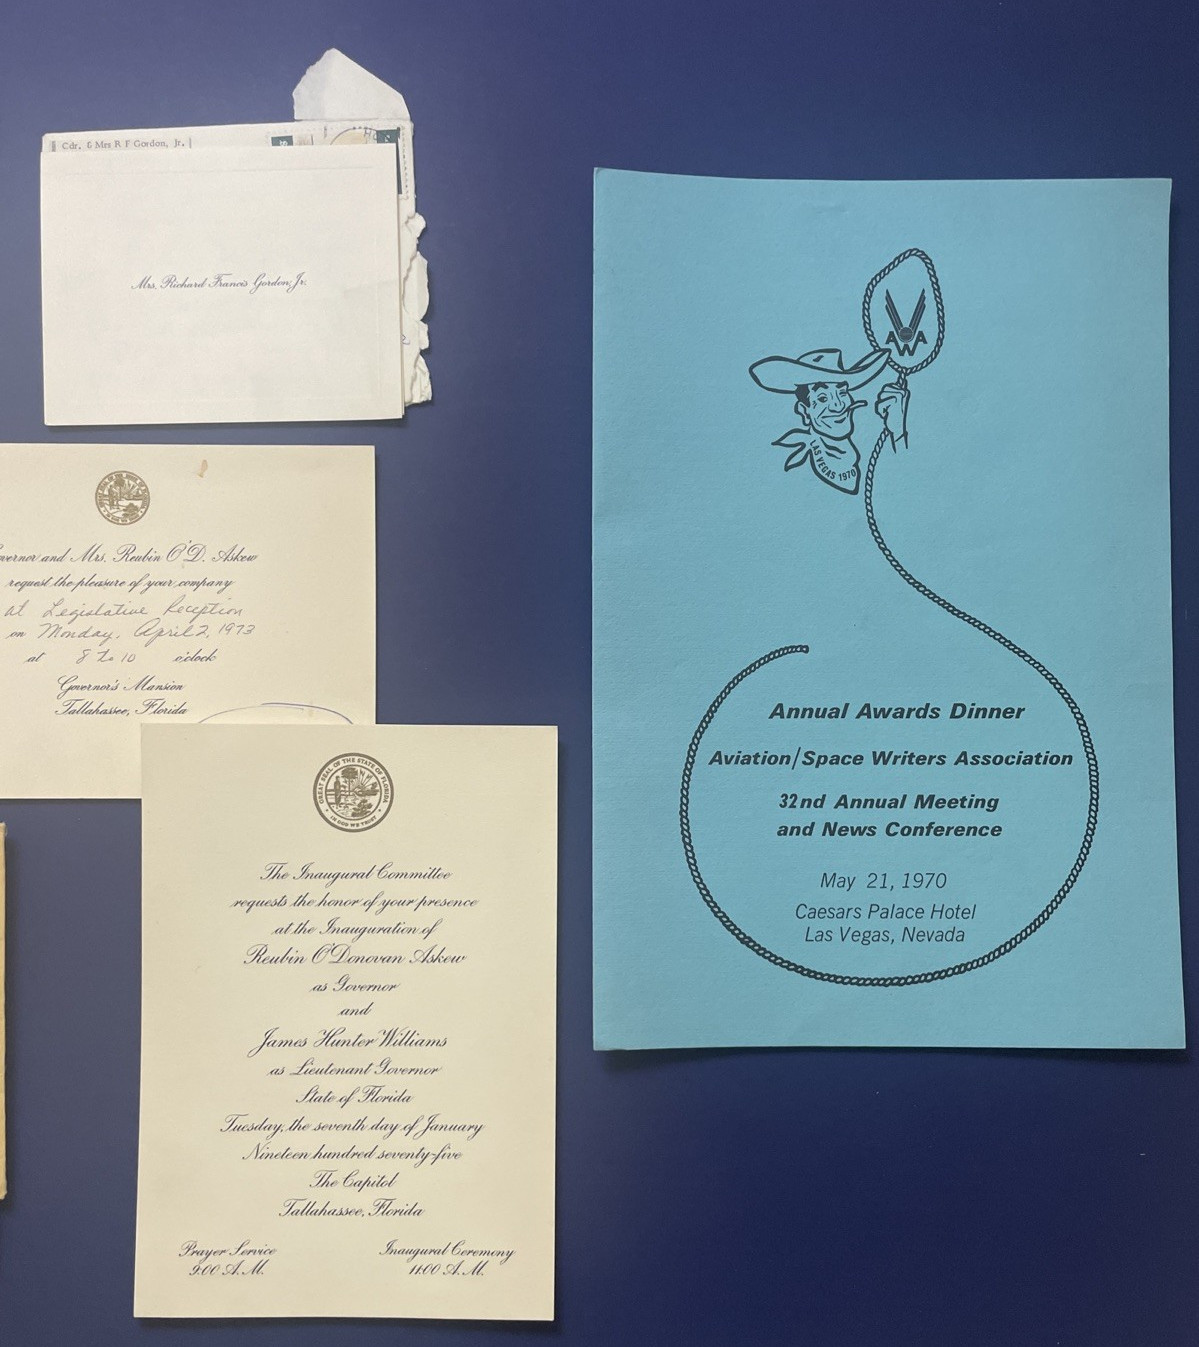 Cdr. & Mrs R F Gordon, Jr.
Mrs. Richard Francis Gordon, Jr.
and Mrs. Reubin O'D. Askew
request the pleasure of your company
at Legislative Reception
on Monday, April 2, 1973
at 8 to 10 o'clock
Governor's Mansion
Tallahassee, Florida
GREAT SEAL OF THE STATE OF FLORIDA
IN GOD WE TRUST
The Inaugural Committee
requests the honor of your presence
at the Inauguration of
Reubin O'Donovan Askew
as Governor
and
James Hunter Williams
as Lieutenant Governor
State of Florida
Tuesday, the seventh day of January
Nineteen hundred seventy-five
The Capitol
Tallahassee, Florida
Prayer Service
9:00 A.M.
Inaugural Ceremony
11:00 A.M.
AWA
LAS VEGAS 1970
Annual Awards Dinner
Aviation/Space Writers Association
32nd Annual Meeting
and News Conference
May 21, 1970
Caesars Palace Hotel
Las Vegas, Nevada